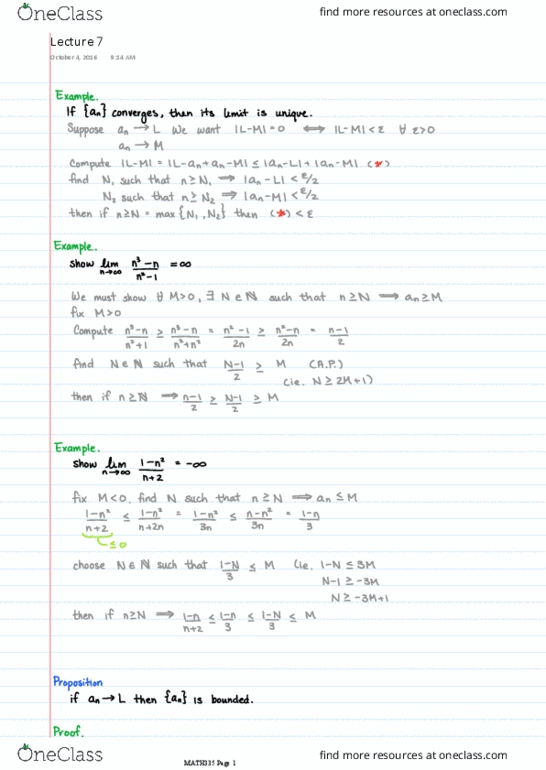 OneClass find more resources at oneclass.com
Lecture 7
October 4, 2016 9:34 AM
Example.
If {aₙ} converges, then its limit is unique.
Suppose aₙ → L We want |L-M|=0 ⟺ |L-M|<ε ∀ ε>0
aₙ → M
Compute |L-M| = |L-aₙ+aₙ-M| ≤ |aₙ-L|+|aₙ-M| (*)
find N₁ such that n≥N₁ ⟹ |aₙ-L|<ε/2
N₂ such that n≥N₂ ⟹ |aₙ-M|<ε/2
then if n≥N = max{N₁,N₂} then (*) < ε
Example.
Show lim n→∞ (n³-n)/(n²-1) = ∞
We must show ∀ M>0, ∃ N∈ℕ such that n≥N ⟹ aₙ≥M
fix M>0
Compute (n³-n)/(n²+1) ≥ (n³-n)/(n²+n²) = (n²-1)/2n ≥ (n²-n)/2n = (n-1)/2
find N∈ℕ such that (N-1)/2 ≥ M (A.P.)
(ie. N≥2M+1)
then if n≥N ⟹ (n-1)/2 ≥ (N-1)/2 ≥ M
Example.
Show lim n→∞ (1-n²)/(n+2) = -∞
fix M<0. find N such that n≥N ⟹ aₙ≤M
(1-n²)/(n+2) ≤ (1-n²)/(n+2n) = (1-n²)/3n ≤ (n-n²)/3n = (1-n)/3
≤0
choose N∈ℕ such that (1-N)/3 ≤ M (ie. 1-N ≤ 3M
N-1 ≥ -3M
N ≥ -3M+1
then if n≥N ⟹ (1-n)/(n+2) ≤ (1-n)/3 ≤ (1-N)/3 ≤ M
Proposition
if aₙ→L then {aₙ} is bounded.
Proof.
OneClass find more resources at oneclass.com
MATH135 Page 1